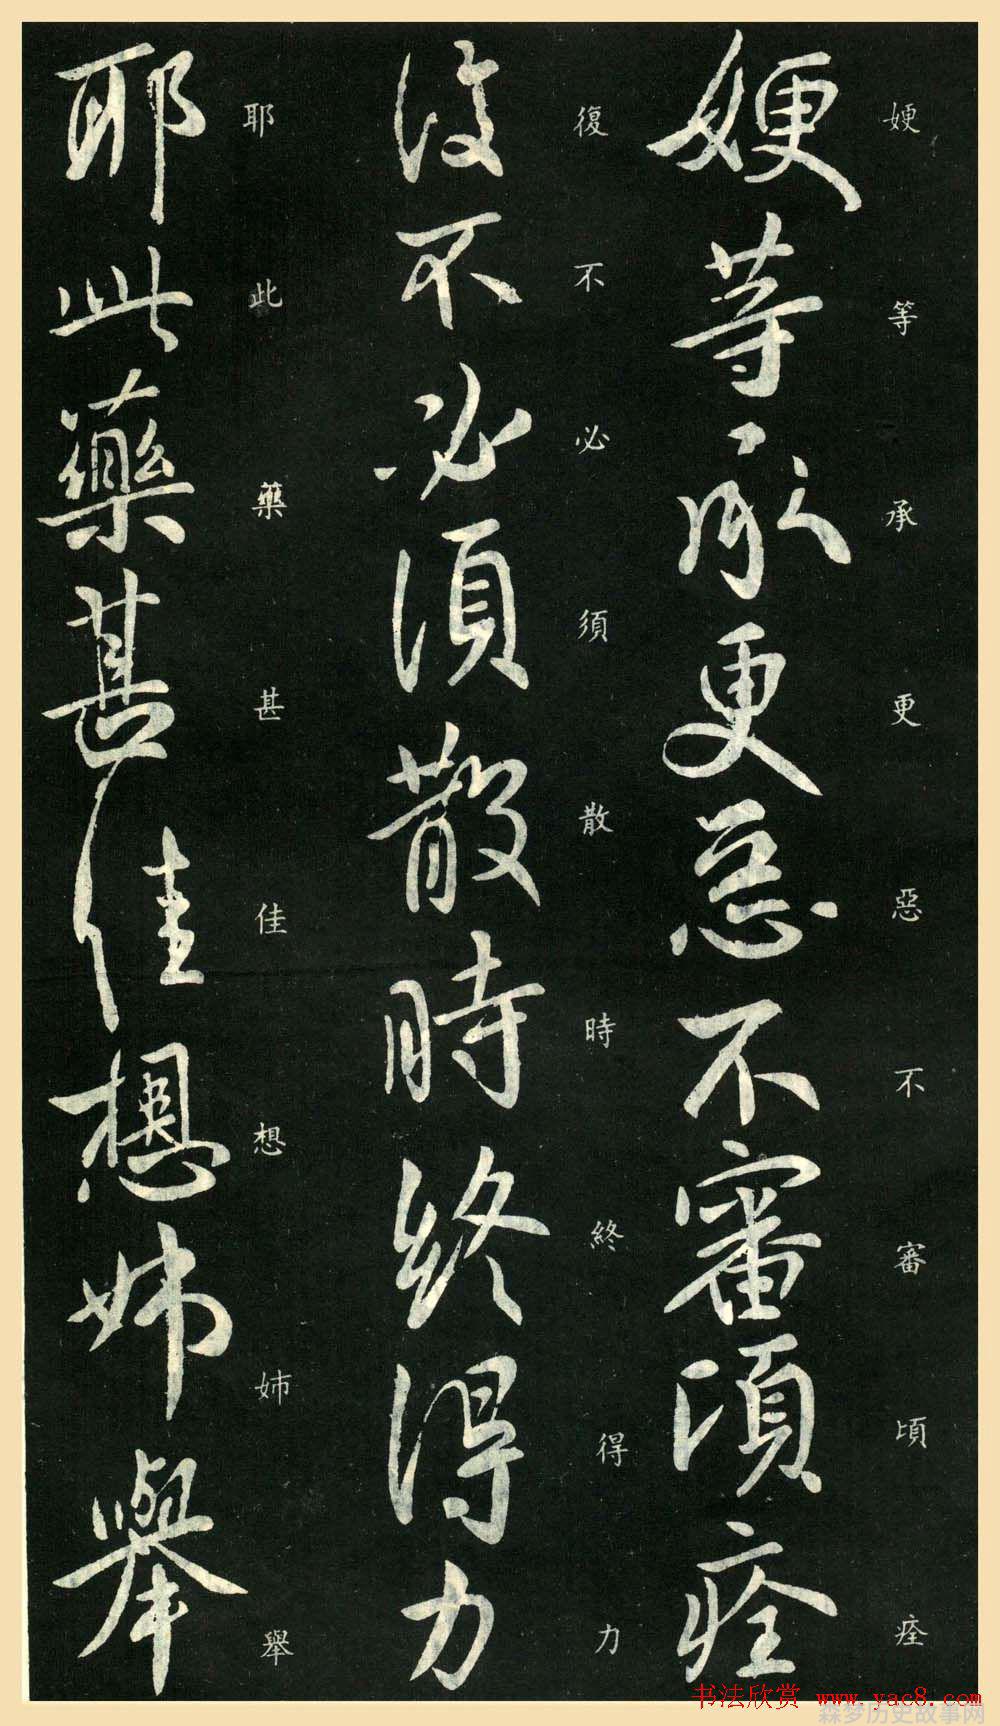 㛐等承更惡不審頃痊
㛐等承更惡不審頃痊
復不必須散時終得力
復不必須散時終得力
耶此藥甚佳想姊舉
耶此藥甚佳想姊舉
书法欣赏 www.yac8.com
森梦历史故事网